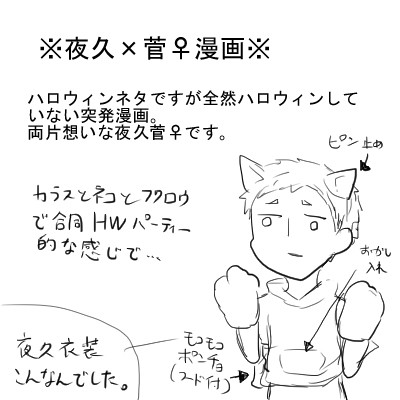 ※夜久×菅♀漫画※
ハロウィンネタですが全然ハロウィンして
いない突発漫画。
両片想いな夜久菅♀です。
ピン止め
カラスとネコとフクロウ
で合同HWパーティー
的な感じで…
おかし
入れ
モコモコ
ポンチョ
(フード付)
夜久衣装
こんなんでした。